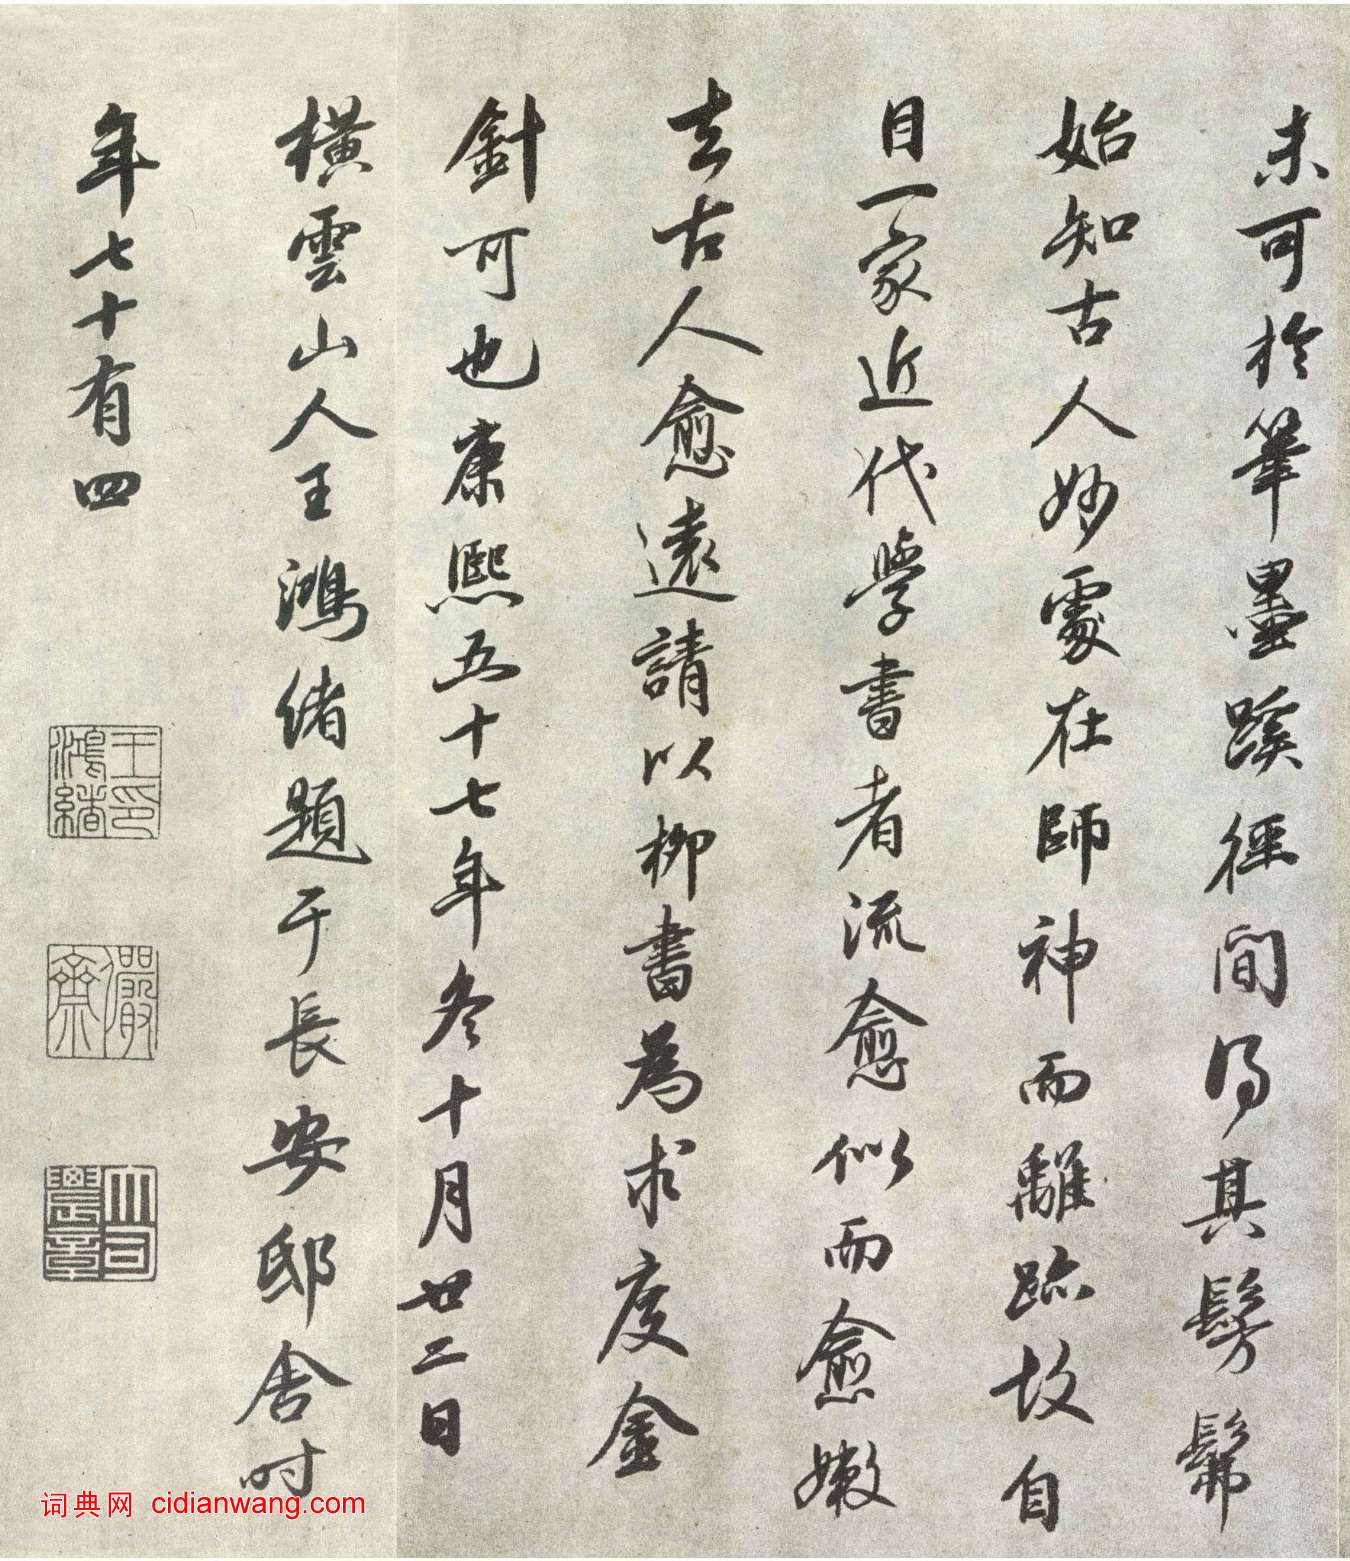 未可於筆墨蹊徑間得其髣髴
始知古人妙處在師神而離跡故自
目一家近代學書者流愈似而愈嫩
去古人愈遠請以柳書為求度金
針可也康熙五十七年冬十月廿二日
橫雲山人王鴻緒題于長安邸舍时
年七十有四
王印鴻緒
儼齋
大司農章
词典网 cidianwang.com